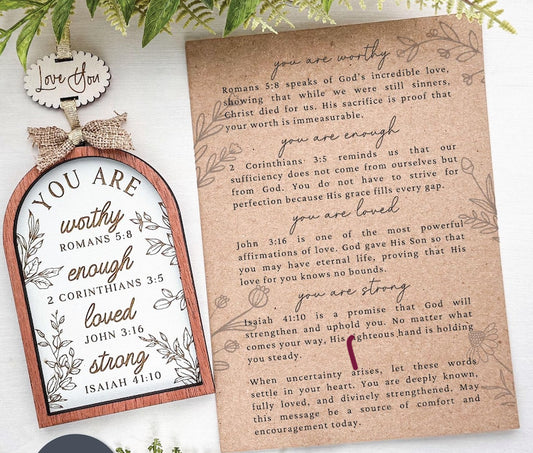 Love You
YOU ARE
worthy
ROMANS 5:8
enough
2 CORINTHIANS 3:5
loved
JOHN 3:16
strong
ISAIAH 41:10
you are worthy
Romans 5:8 speaks of God's incredible love,
showing that while we were still sinners,
Christ died for us. His sacrifice is proof that
your worth is immeasurable.
you are enough
2 Corinthians 3:5 reminds us that our
sufficiency does not come from ourselves but
from God. You do not have to strive for
perfection because His grace fills every gap.
you are loved
John 3:16 is one of the most powerful
affirmations of love. God gave His Son so that
you may have eternal life, proving that His
love for you knows no bounds.
you are strong
Isaiah 41:10 is a promise that God will
strengthen and uphold you. No matter what
comes your way, His hand is holding
you steady.
When uncertainty arises, let these words
settle in your heart. You are deeply known,
fully loved, and divinely strengthened. May
this message be a source of comfort and
encouragement today.